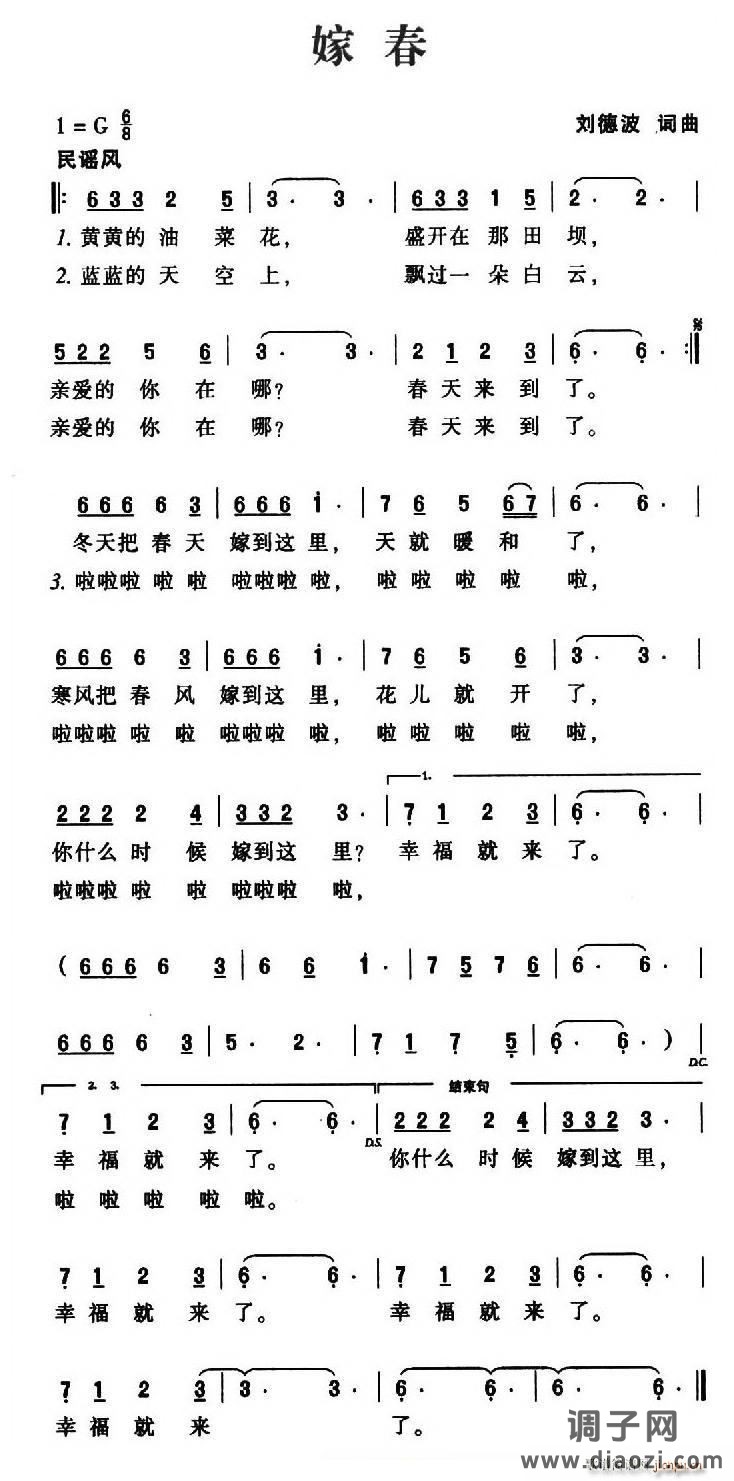 嫁春
1=G 6/8
刘德波 词曲
民谣风
‖: 6 3 3 2 5 | 3· 3· | 6 3 3 1 5 | 2· 2· |
1. 黄黄的 油 菜 花， 盛开在 那 田 坝，
2. 蓝蓝的 天 空 上， 飘过一 朵 白 云，
5 2 2 5 6 | 3· 3· | 2 1 2 3 | 6· 6· :‖
亲爱的 你 在 哪？ 春 天 来 到 了。
亲爱的 你 在 哪？ 春 天 来 到 了。
6 6 6 6 3 | 6 6 6 i· | 7 6 5 67 | 6· 6· |
冬天把 春 天 嫁到这 里， 天 就 暖 和 了，
3. 啦啦啦 啦 啦 啦啦啦 啦， 啦 啦 啦 啦 啦，
6 6 6 6 3 | 6 6 6 i· | 7 6 5 6 | 3· 3· |
寒风把 春 风 嫁到这 里， 花 儿 就 开 了，
啦啦啦 啦 啦 啦啦啦 啦， 啦 啦 啦 啦 啦，
1.
2 2 2 2 4 | 3 3 2 3· | 7 1 2 3 | 6· 6· |
你什么 时 候 嫁到这 里？ 幸 福 就 来 了。
啦啦啦 啦 啦 啦啦啦 啦，
( 6 6 6 6 3 | 6 6 i· | 7 5 7 6 | 6· 6· |
6 6 6 6 3 | 5· 2· | 7 1 7 5 | 6· 6· ) |
D.C.
2. 3. 结束句
7 1 2 3 | 6· 6· ‖ 2 2 2 2 4 | 3 3 2 3· |
D.S.
幸 福 就 来 了。 你什么 时 候 嫁到这 里，
啦 啦 啦 啦 啦。
7 1 2 3 | 6· 6· | 7 1 2 3 | 6· 6· |
幸 福 就 来 了。 幸 福 就 来 了。
7 1 2 3 | 3· 3· | 6· 6· | 6· 6· ‖
幸 福 就 来 了。
调子网
www.diaozi.com